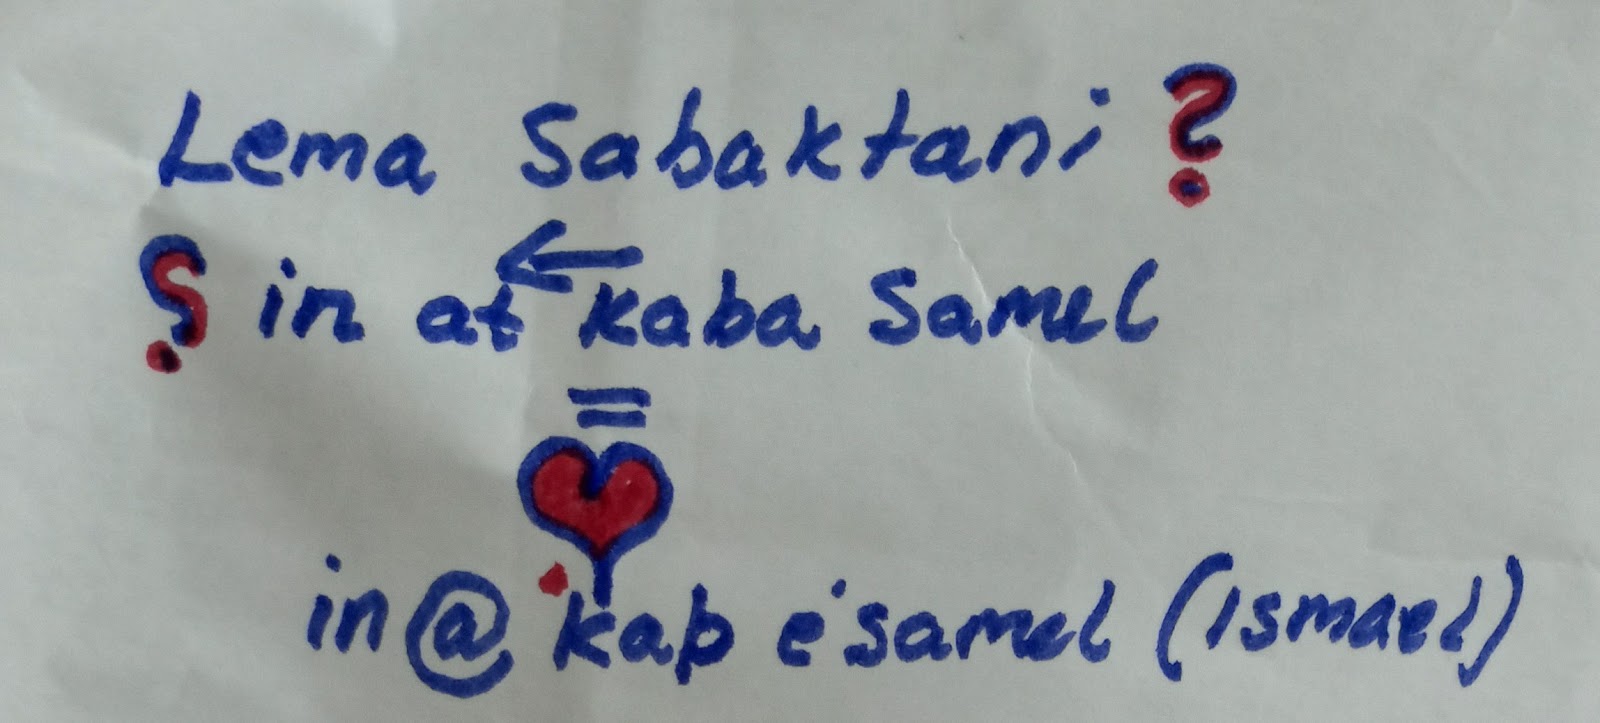 Lema Sabaktani ?
⸮ in at ← kaba Samel
=
in @ kap e'samel (ismael)